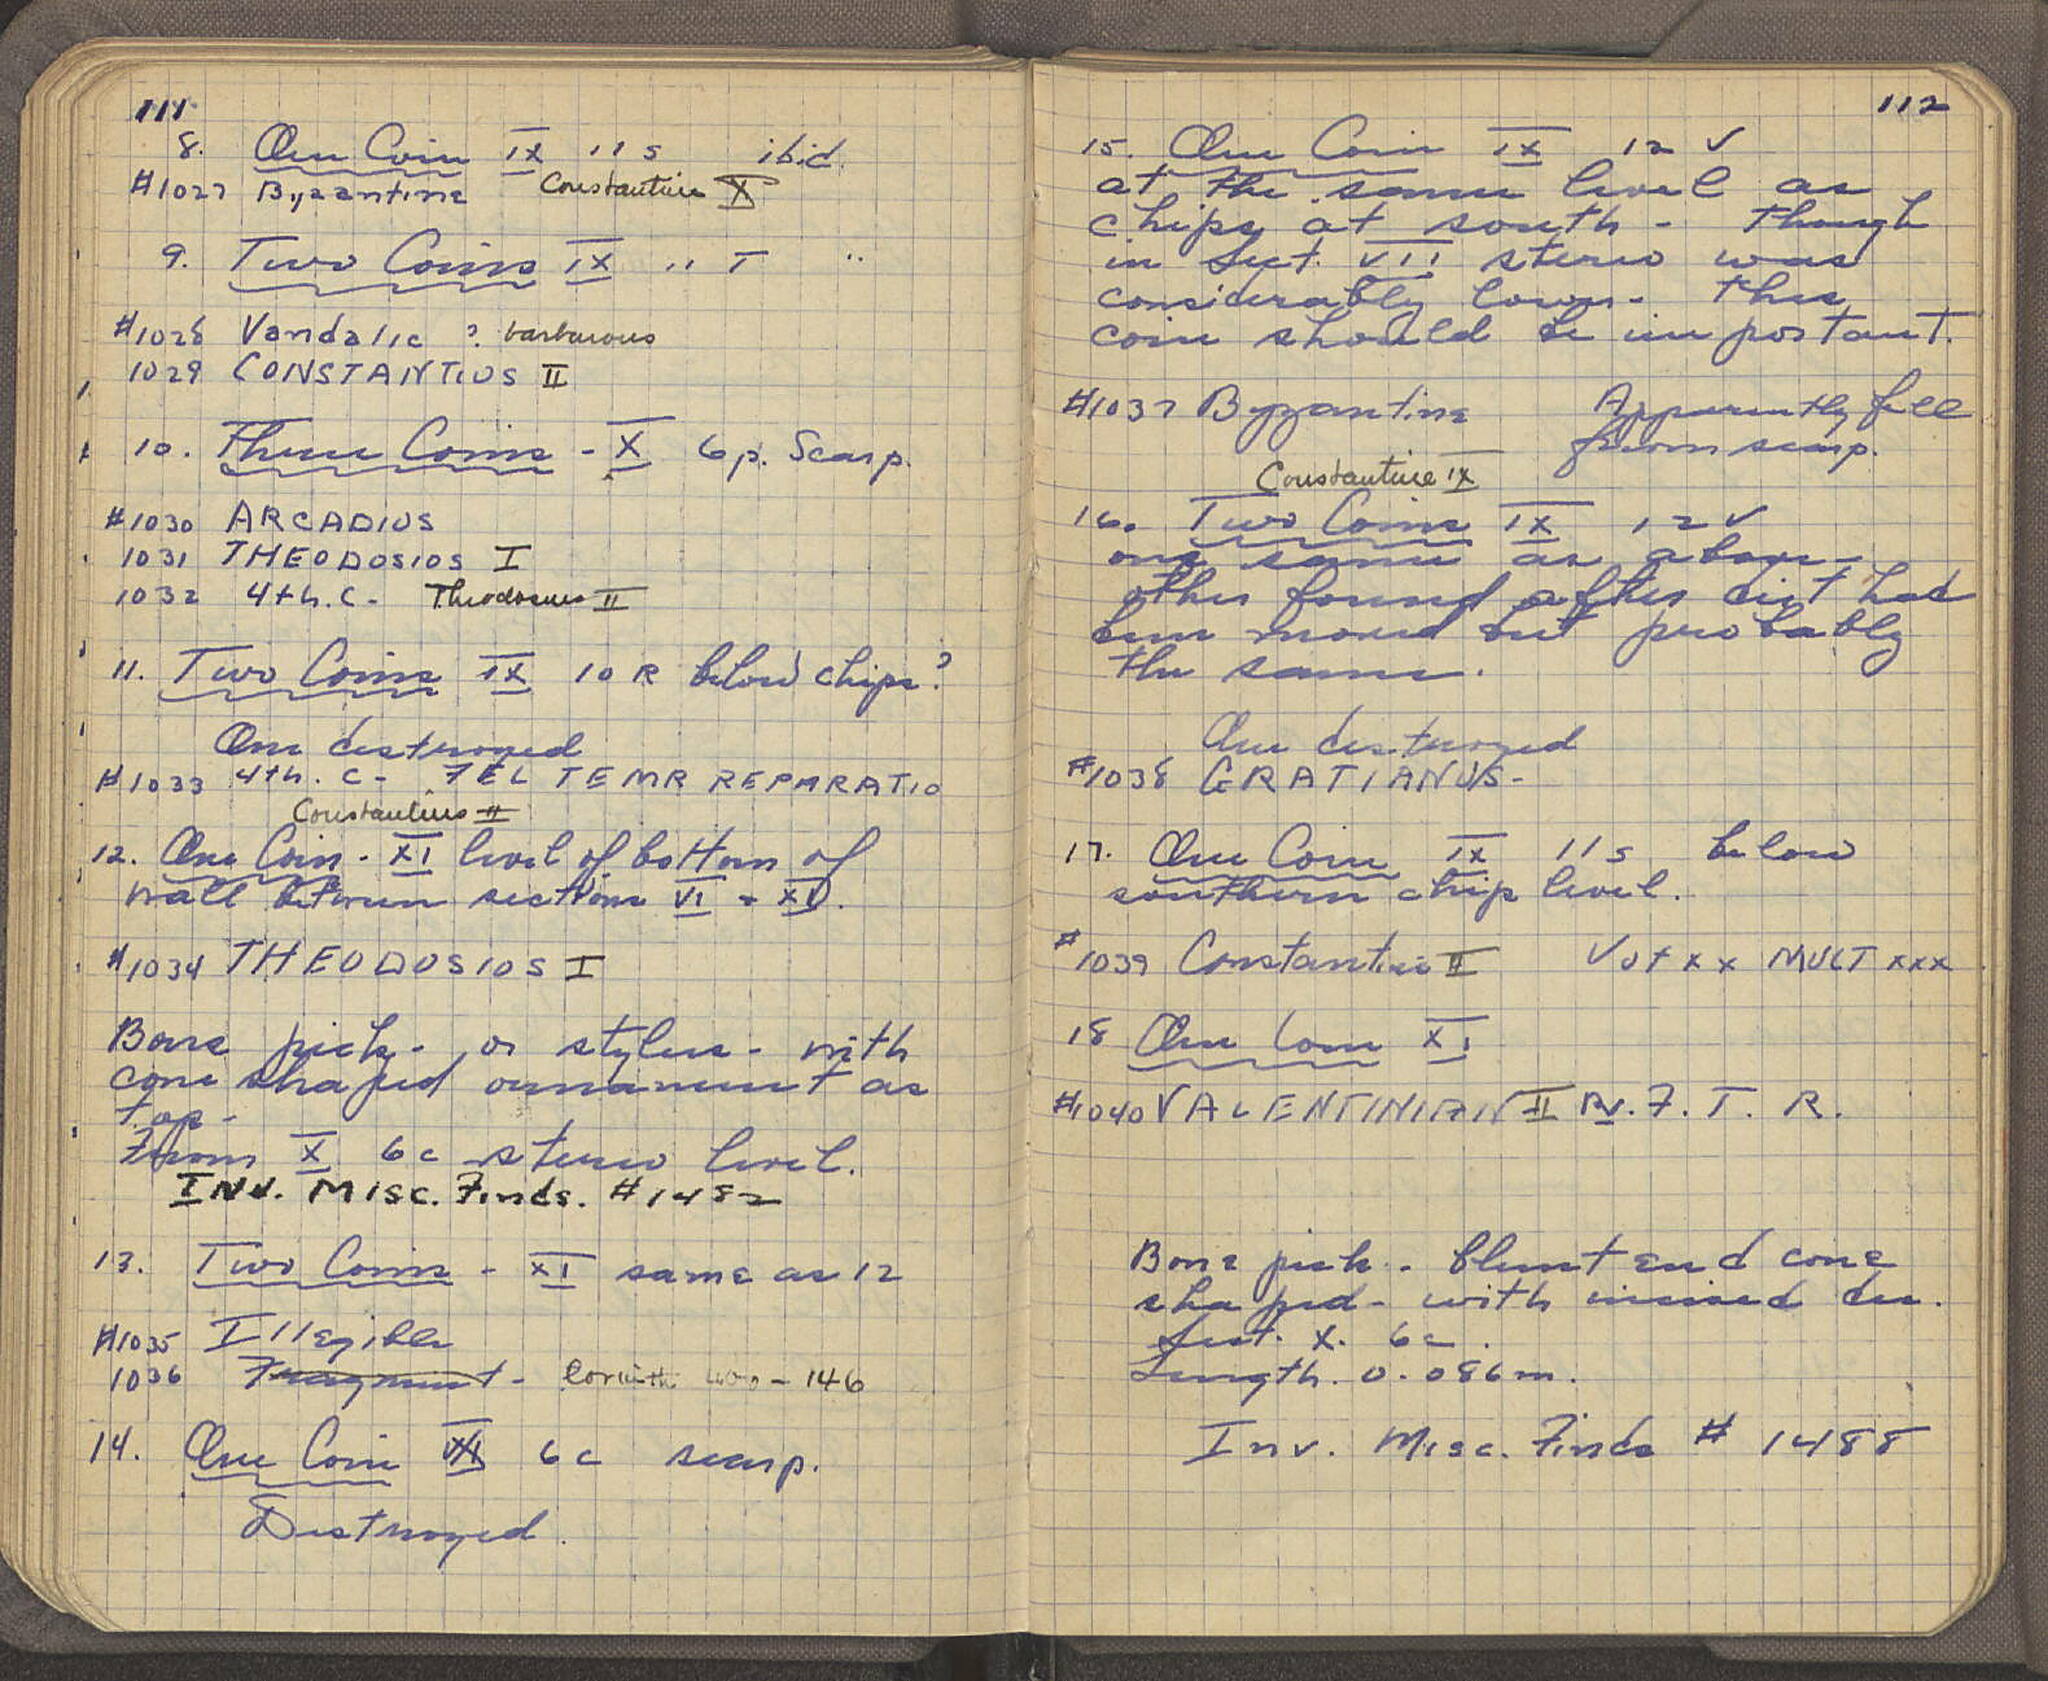 111
8. One Coin IX 11 S ibid.
#1027 Byzantine Constantine X
9. Two Coins IX " T "
#1028 Vandalic ? barbarous
1029 CONSTANTIUS II
10. Three Coins - X 6 p. Scarp.
#1030 ARCADIUS
1031 THEODOSIOS I
1032 4th. C - Theodosius II
11. Two Coins IX 10 R below chips?
One destroyed
#1033 4th. C - FEL TEMR REPARATIO
Constantius II
12. One Coin - XI level of bottom of
wall between sections VI + XI.
#1034 THEODOSIOS I
Bone pick - or stylus - with
cone shaped ornament as
top -
From X 6c stereo level.
INV. MISC. Finds. #1482
13. Two Coins - XI same as 12
#1035 Illegible
1036 Fragment - Corinth 400 - 146
14. One Coin 6c scarp.
Destroyed.
112
15. One Coin IX 12 V
at the same level as
chips at south - though
in Sect. VII stereo was
considerably lower - this
coin should be important.
#1037 Byzantine Apparently fell
from scarp.
Constantine IX
16. Two Coins IX 12 V
one same as above
other found after dirt had
been moved but probably
the same.
One destroyed
#1038 GRATIANUS -
17. One Coin IX 11 S below
southern chip level.
#1039 Constantine II Vot xx MULT xxx
18 One Coin XI
#1040 VALENTINIAN II Rv. F. T. R.
Bone pick - blunt end cone
shaped - with incised dec.
Sect. X. 6c.
Length. 0.086m.
Inv. Misc. Finds # 1488